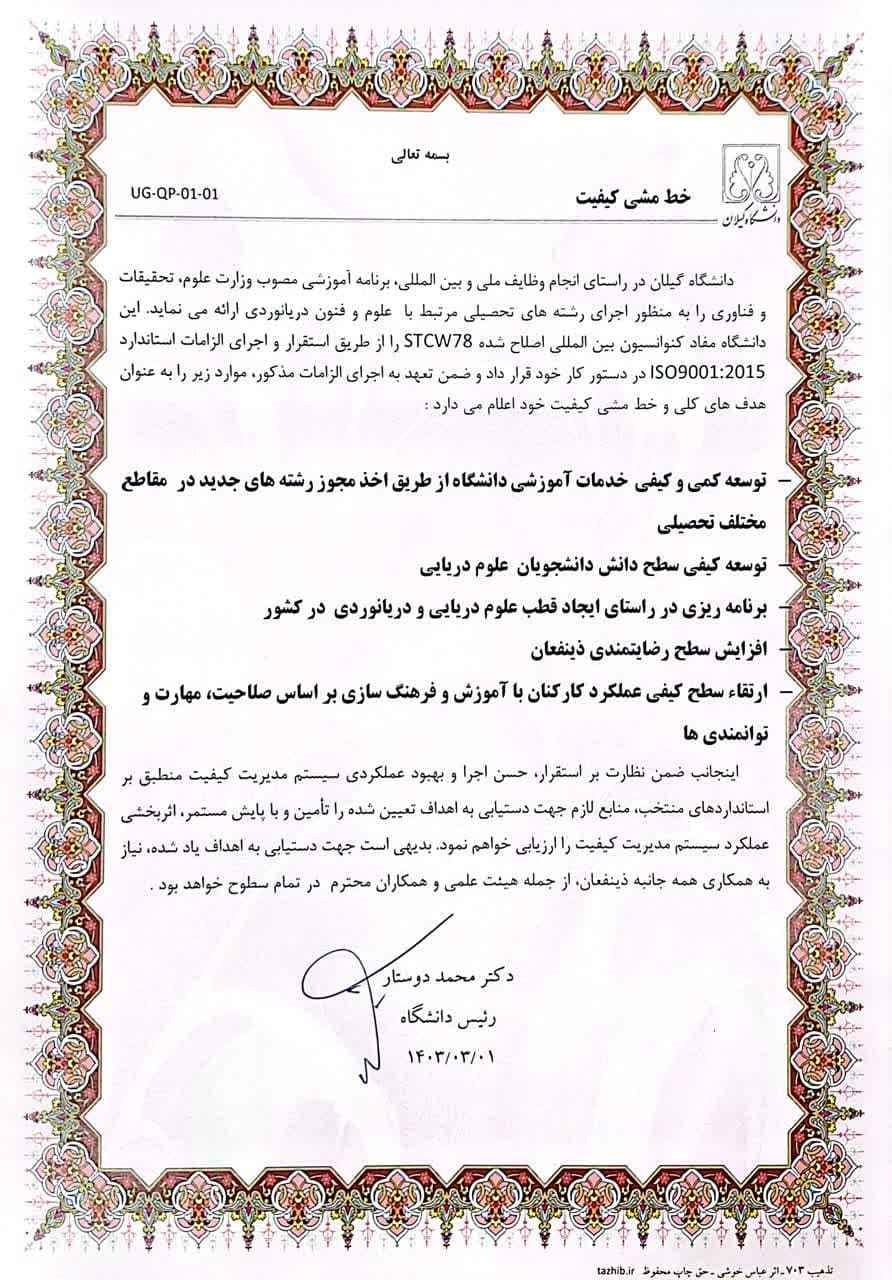 بسمه تعالی
خط مشی کیفیت
UG-QP-01-01
دانشگاه گیلان
دانشگاه گیلان در راستای انجام وظایف ملی و بین المللی، برنامه آموزشی مصوب وزارت علوم، تحقیقات
و فناوری را به منظور اجرای رشته های تحصیلی مرتبط با علوم و فنون دریانوردی ارائه می نماید. این
دانشگاه مفاد کنوانسیون بین المللی اصلاح شده STCW78 را از طریق استقرار و اجرای الزامات استاندارد
ISO9001:2015 در دستور کار خود قرار داد و ضمن تعهد به اجرای الزامات مذکور، موارد زیر را به عنوان
هدف های کلی و خط مشی کیفیت خود اعلام می دارد :
– توسعه کمی و کیفی خدمات آموزشی دانشگاه از طریق اخذ مجوز رشته های جدید در مقاطع
مختلف تحصیلی
– توسعه کیفی سطح دانش دانشجویان علوم دریایی
– برنامه ریزی در راستای ایجاد قطب علوم دریایی و دریانوردی در کشور
– افزایش سطح رضایتمندی ذینفعان
– ارتقاء سطح کیفی عملکرد کارکنان با آموزش و فرهنگ سازی بر اساس صلاحیت، مهارت و
توانمندی ها
اینجانب ضمن نظارت بر استقرار، حسن اجرا و بهبود عملکردی سیستم مدیریت کیفیت منطبق بر
استانداردهای منتخب، منابع لازم جهت دستیابی به اهداف تعیین شده را تأمین و با پایش مستمر، اثربخشی
عملکرد سیستم مدیریت کیفیت را ارزیابی خواهم نمود. بدیهی است جهت دستیابی به اهداف یاد شده، نیاز
به همکاری همه جانبه ذینفعان، از جمله هیئت علمی و همکاران محترم در تمام سطوح خواهد بود .
دکتر محمد دوستار
رئیس دانشگاه
۱۴۰۳/۰۳/۰۱
تذهیب ۷۰۳ - اثر عباس خوشی - حق چاپ محفوظ tazhib.ir